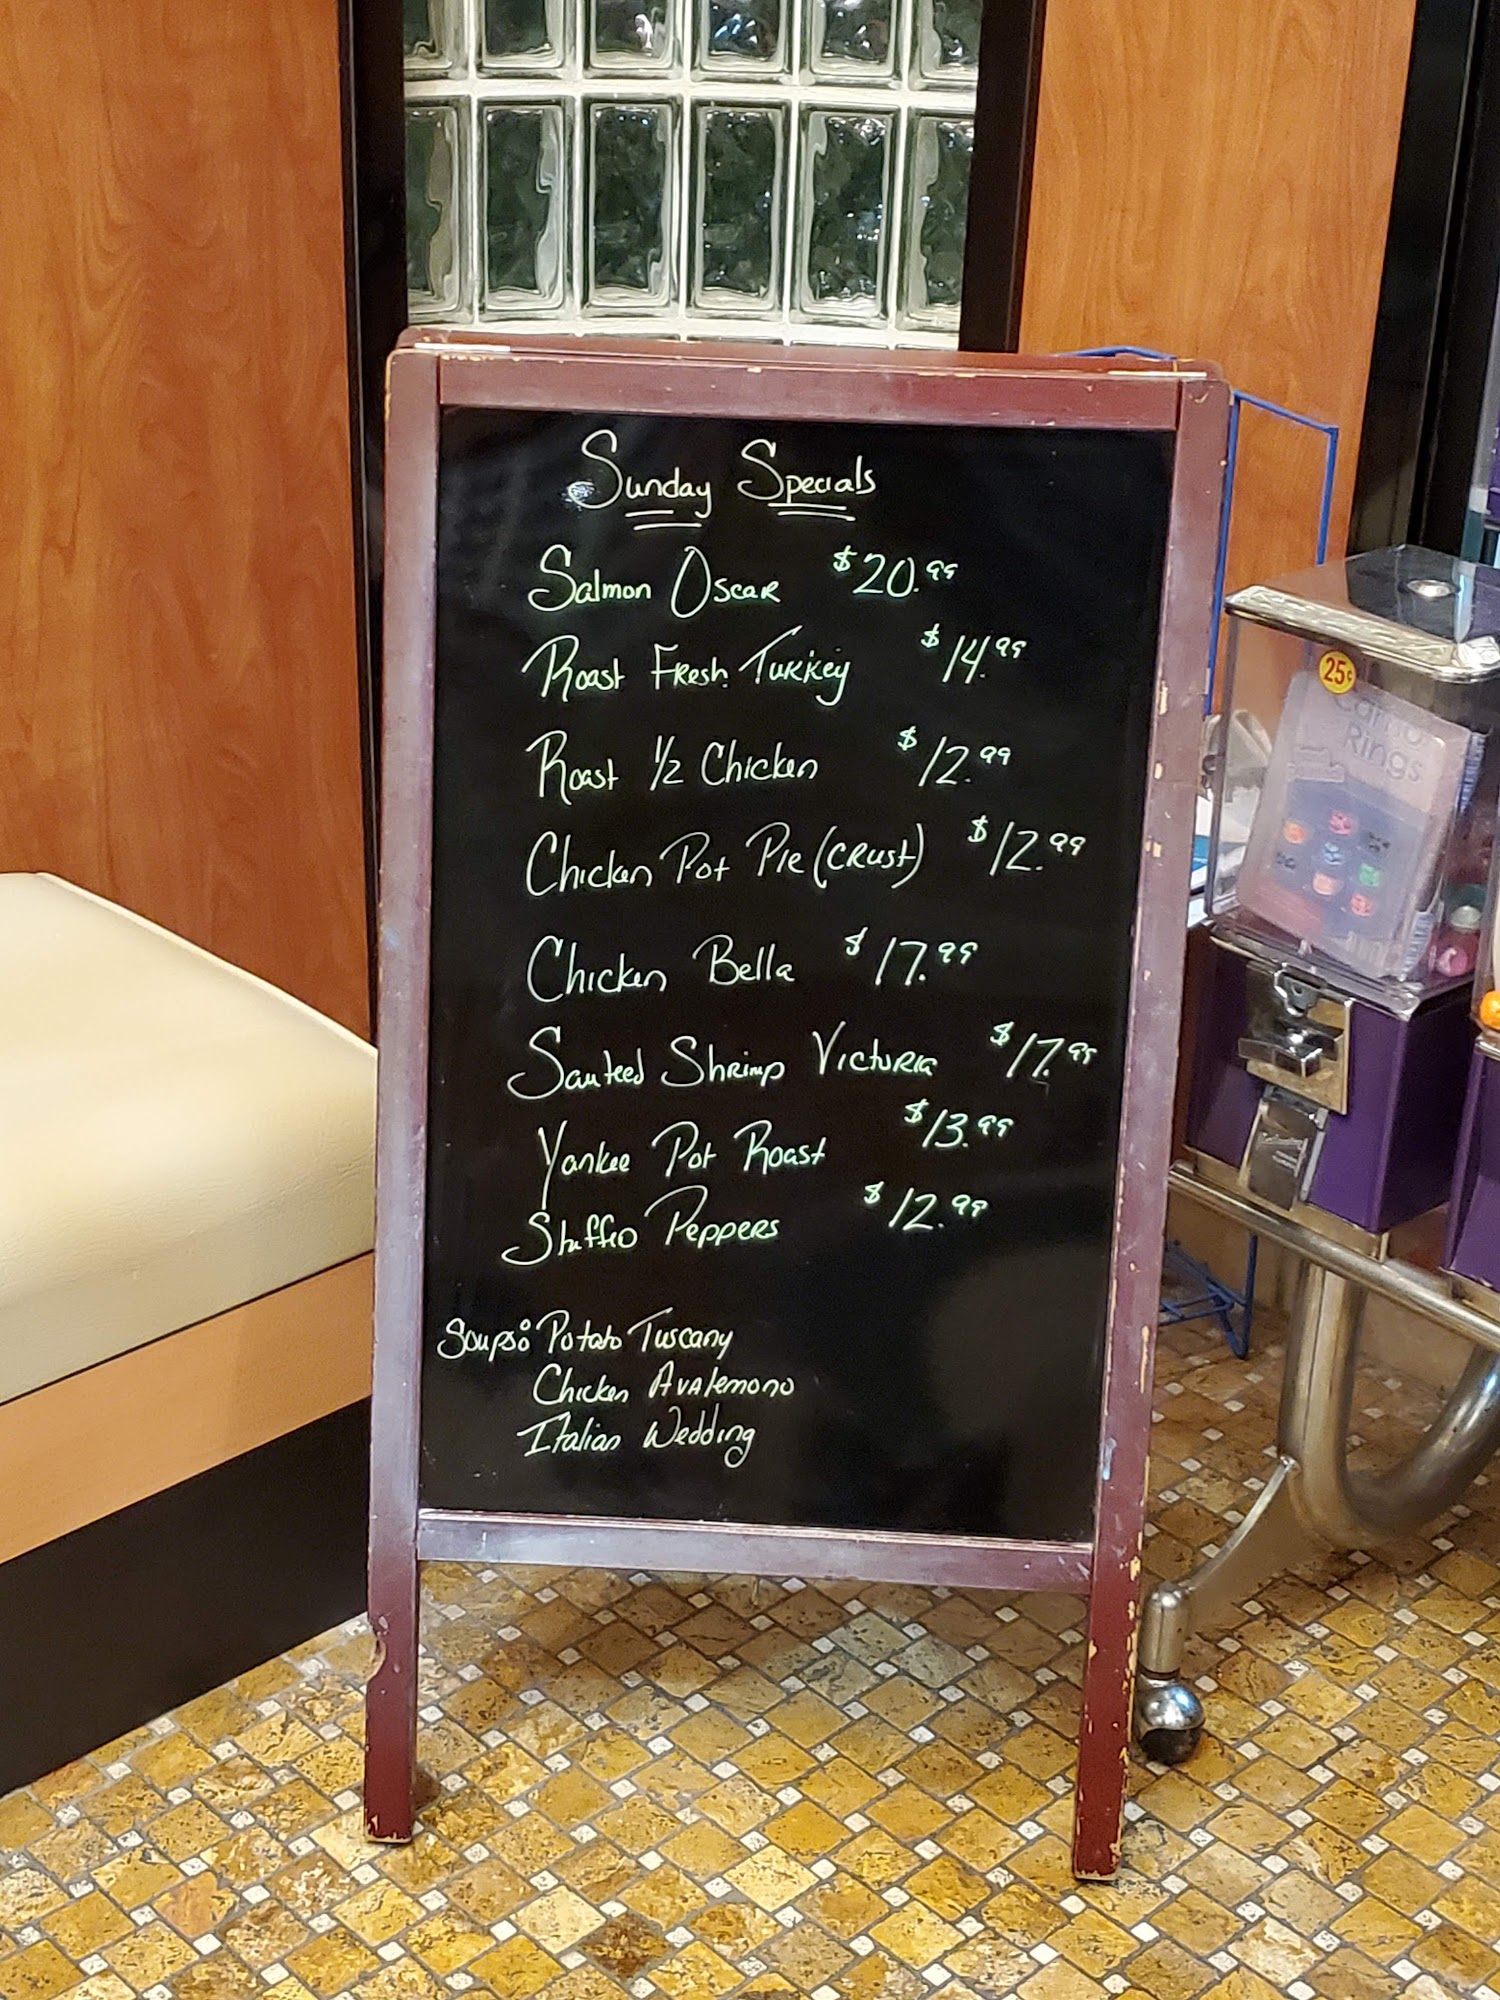 Sunday Specials
Salmon Oscar $20.99
Roast Fresh Turkey $14.99
Roast 1/2 Chicken $12.99
Chicken Pot Pie (crust) $12.99
Chicken Bella $17.99
Sauteed Shrimp Victoria $17.99
Yankee Pot Roast $13.99
Stuffed Peppers $12.99
Soups: Potato Tuscany
Chicken Avalemono
Italian Wedding
25¢
Rings